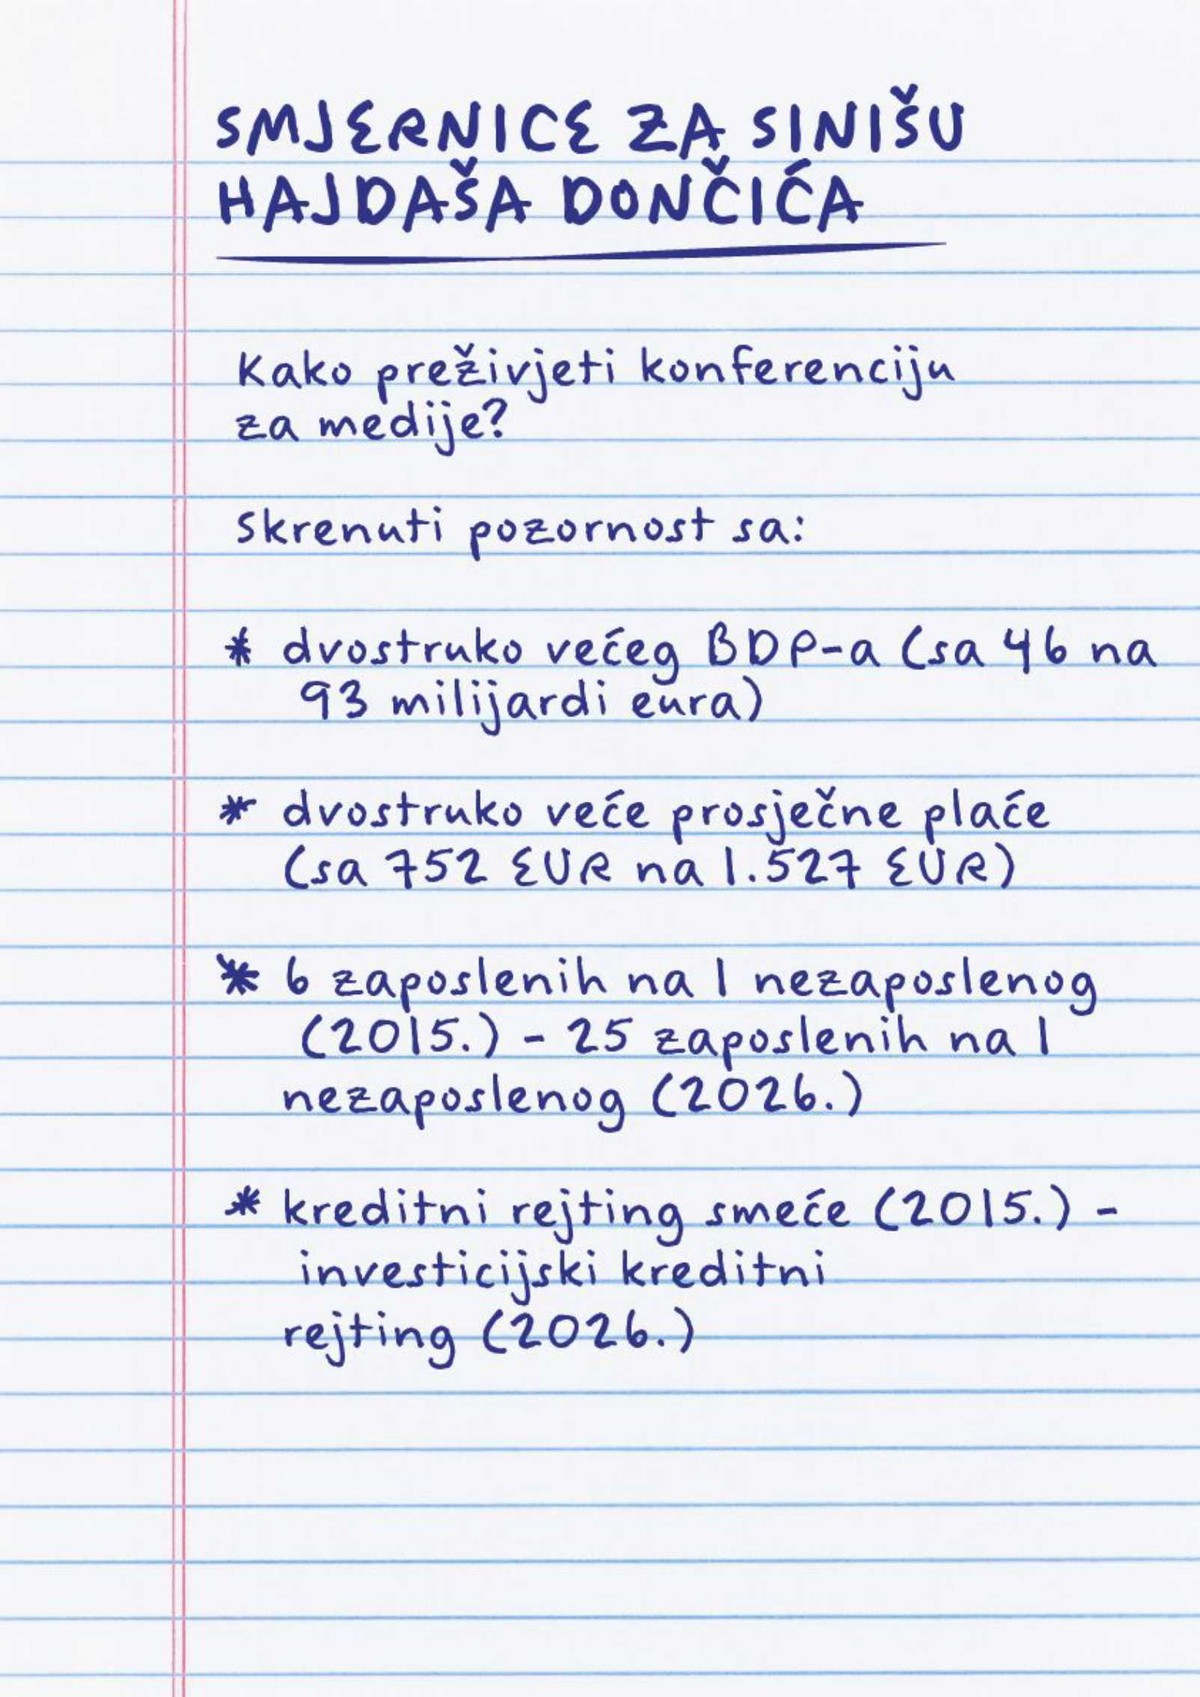 SMJERNICE ZA SINIŠU
HAJDAŠA DONČIĆA
Kako preživjeti konferenciju
za medije?
Skrenuti pozornost sa:
* dvostruko većeg BDP-a (sa 46 na
93 milijardi eura)
* dvostruko veće prosječne plaće
(sa 752 EUR na 1.527 EUR)
* 6 zaposlenih na 1 nezaposlenog
(2015.) - 25 zaposlenih na 1
nezaposlenog (2026.)
* kreditni rejting smeće (2015.) -
investicijski kreditni
rejting (2026.)